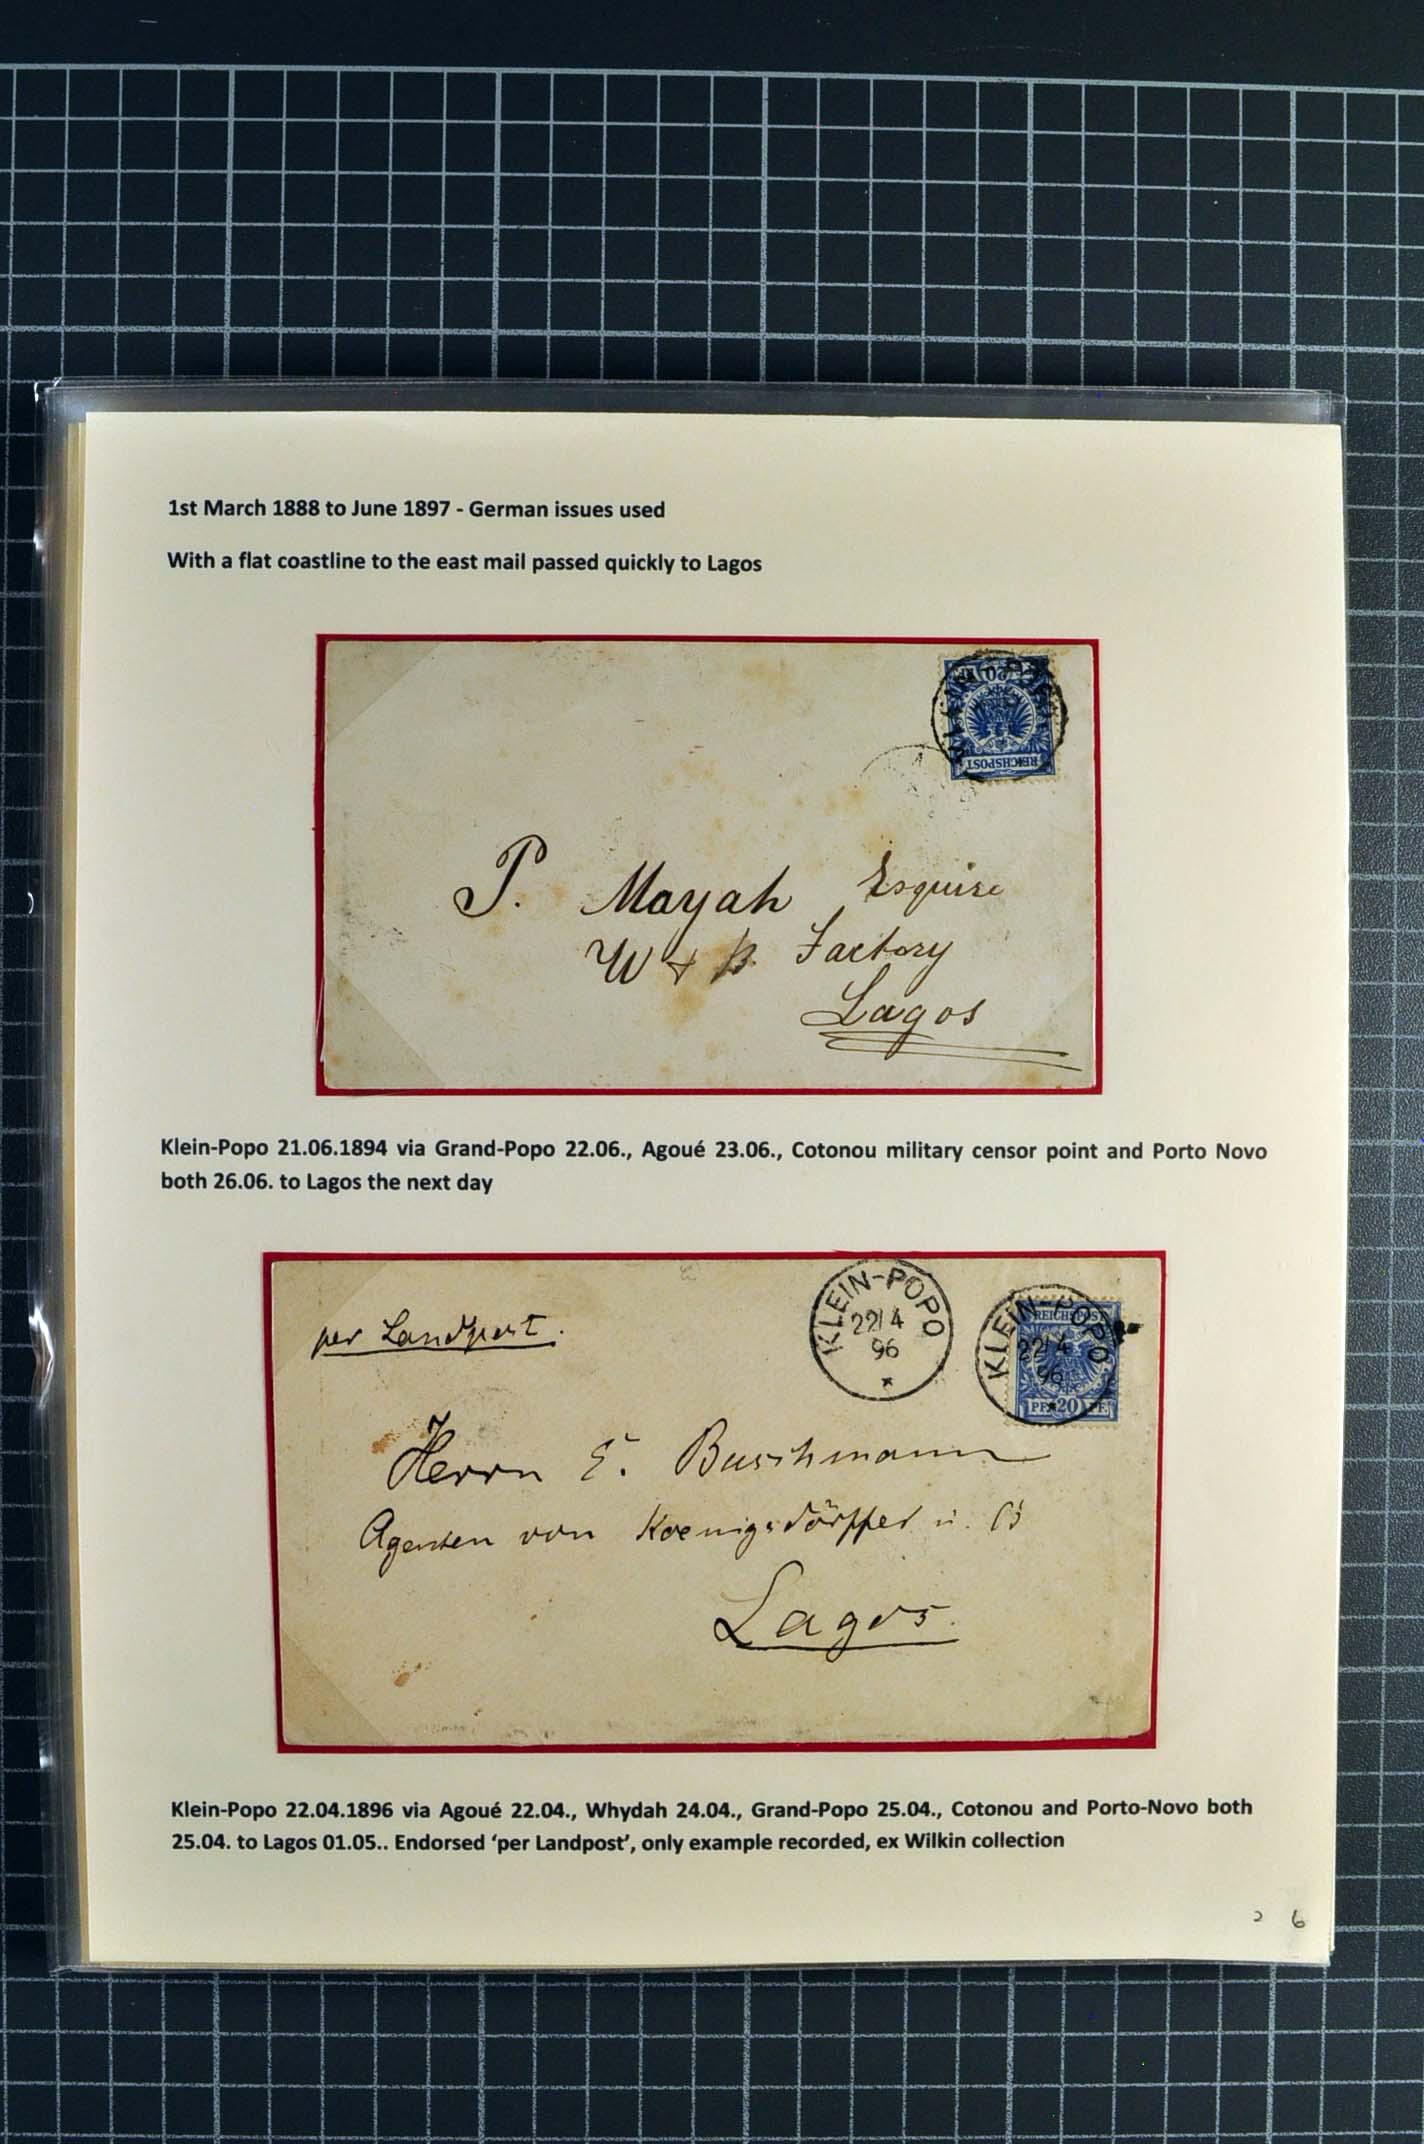 1st March 1888 to June 1897 - German issues used
With a flat coastline to the east mail passed quickly to Lagos
20
REICHSPOST
P. Mayah Esquire
W & B. Factory
Lagos
Klein-Popo 21.06.1894 via Grand-Popo 22.06., Agoué 23.06., Cotonou military censor point and Porto Novo
both 26.06. to Lagos the next day
per Landpost.
KLEIN-POPO
22/4
96
REICHSPOST
KLEIN-POPO
22/4
96
PF 20 PF.
Herrn E. Buschmann
Agenten von Koenigsdörffer u. Co
Lagos.
Klein-Popo 22.04.1896 via Agoué 22.04., Whydah 24.04., Grand-Popo 25.04., Cotonou and Porto-Novo both
25.04. to Lagos 01.05.. Endorsed ‘per Landpost’, only example recorded, ex Wilkin collection
2 6